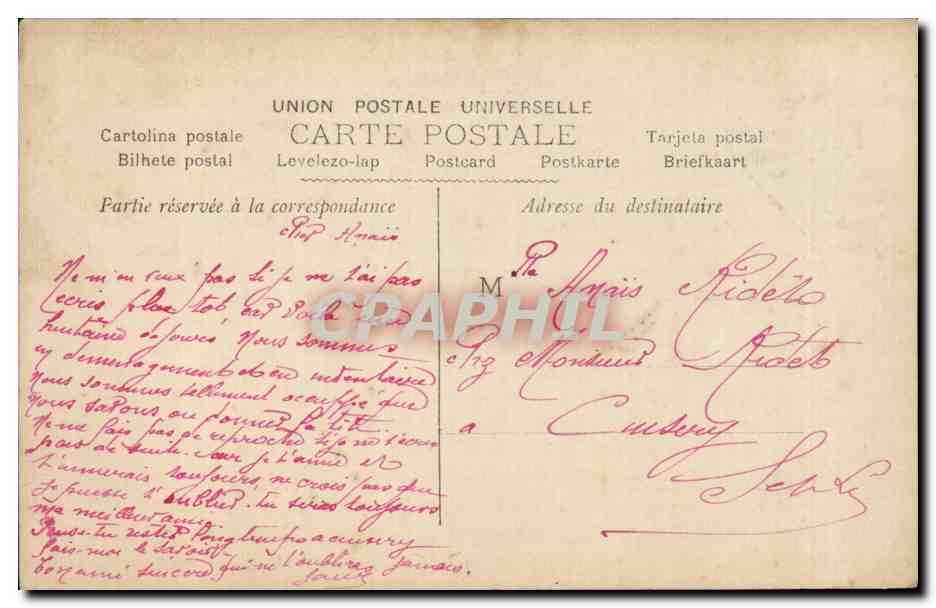 UNION POSTALE UNIVERSELLE
CARTE POSTALE
Cartolina postale Tarjeta postal
Bilhete postal Levelezo-lap Postcard Postkarte Briefkaart
Partie réservée à la correspondance
Adresse du destinataire
Anaïs
Ne m'en veux pas si je ne t'ai pas
plus tot, voila une
huitaine de jours Nous sommes
en demenagement et en inventaire
Nous sommes tellement occuppé que
nous savons ou donner la tête.
Ne me fais pas de reproche si je ne t'écris
pas de suite. Car je t'aime et
t'aimerais toujours, ne crois pas que
je puisse t'oublier. tu seras toujours
ma meilleur amie
Pense-tu rester longtemps a cuisery
fais-moi le savoir
ton ami sincere qui ne t'oubliras jamais.
M Anaïs
chez Monsieur
a Cuisery
CPAPHIL